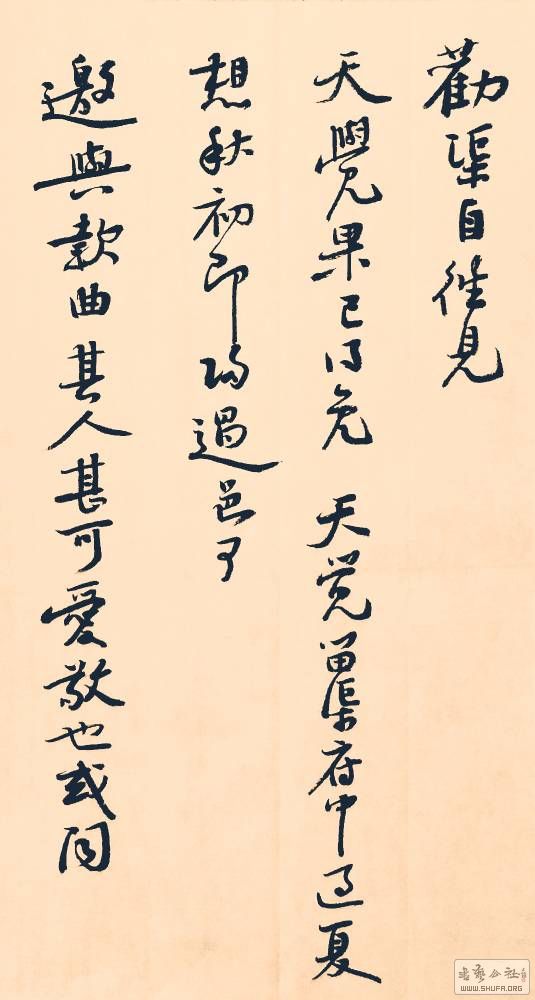 勸渠自往見
天覺果已得免　天覺留渠府中過夏
想秋初即歸過邑可
邀與款曲其人甚可愛敬也或同
書藝公社
WWW.SHUFA.ORG